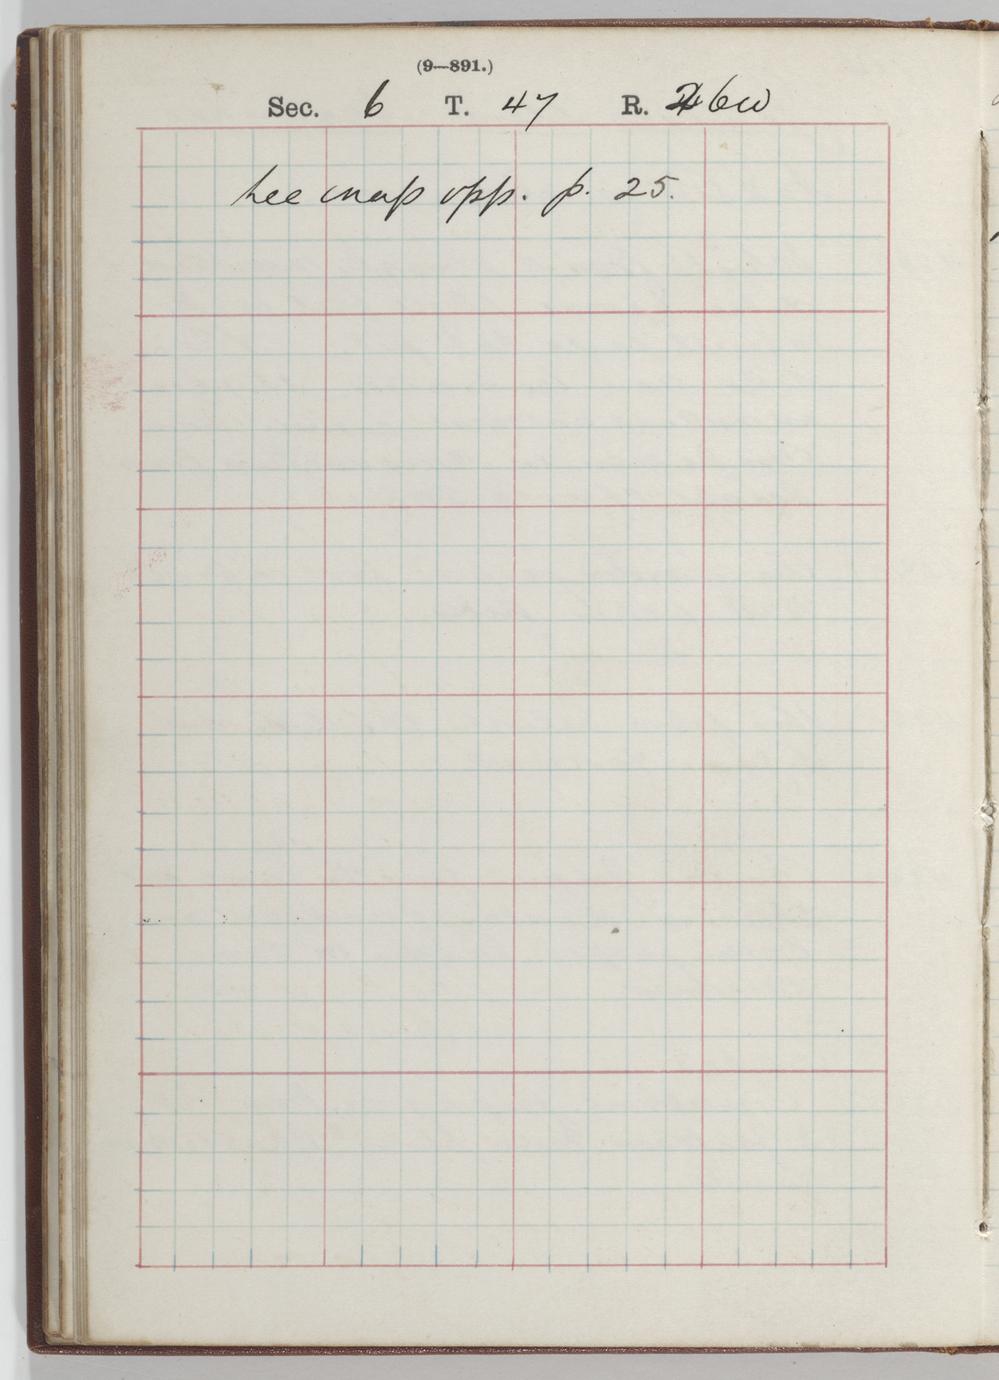 (9—891.)
Sec. 6 T. 47 R. 46W
See map opp. p. 25.